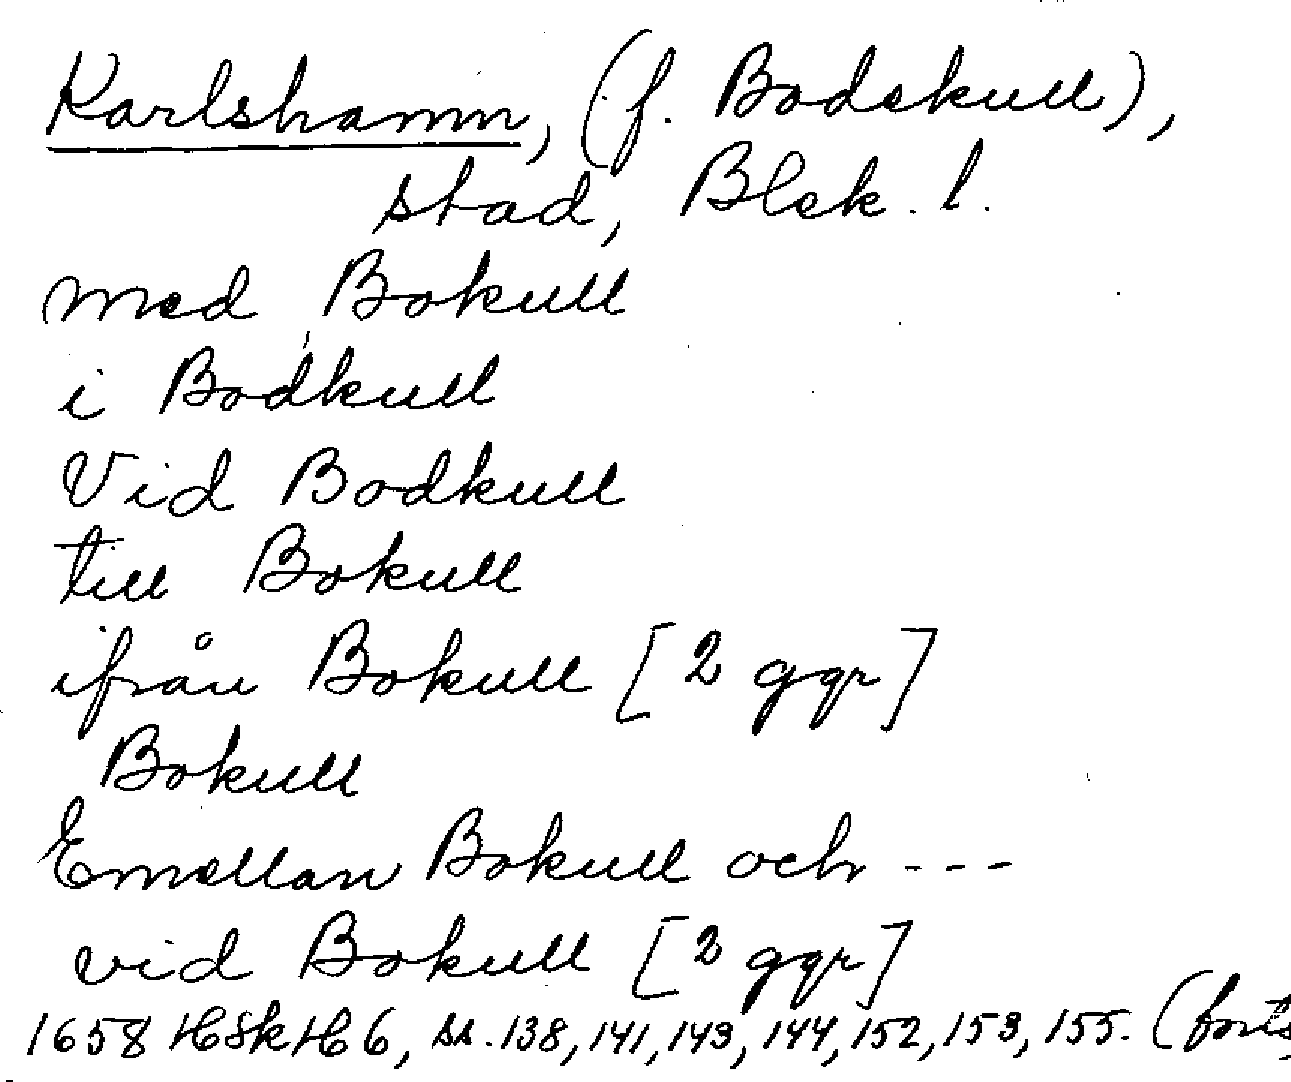 Karlshamn, (f. Bodekull),
stad, Blek. l.
med Bokull
i Bodkull
Vid Bodkull
till Bokull
ifrån Bokull [2 ggr]
Bokull
Emellan Bokull och ---
vid Bokull [2 ggr]
1658 HSkH 6, ss. 138, 141, 143, 144, 152, 153, 155. (forts.